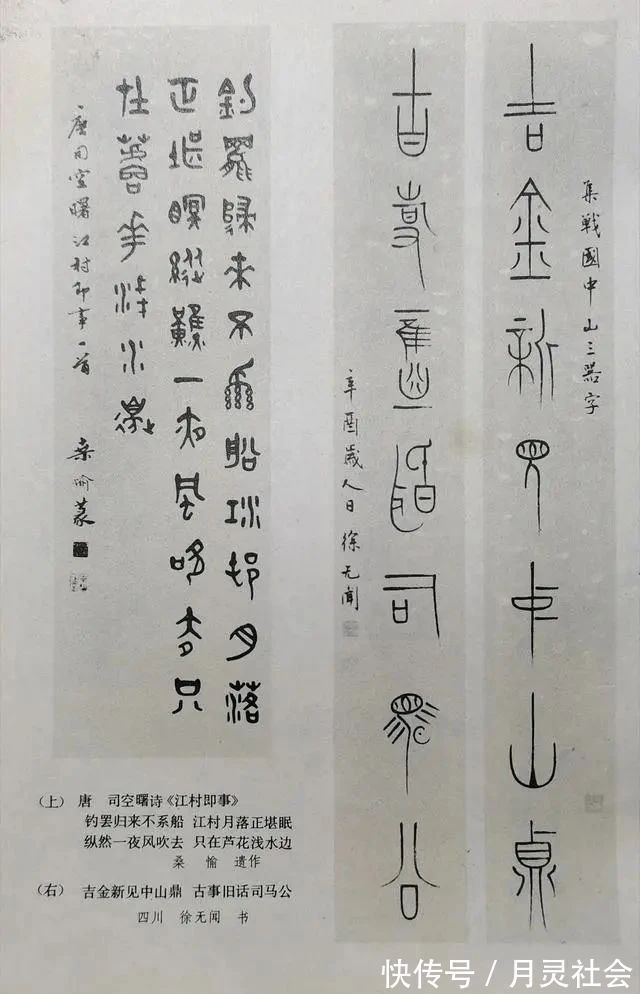 集戰國中山三器字
吉金新見中山鼎
古事舊話司馬公
辛酉歲人日徐无聞
釣罷歸來不系船江邨月落
正堪眠縱然一夜風吹去只
在蘆花淺水邊
唐司空曙江村即事一首 桑愉篆
(上) 唐 司空曙诗《江村即事》
钓罢归来不系船 江村月落正堪眠
纵然一夜风吹去 只在芦花浅水边
桑愉 遗作
(右) 吉金新见中山鼎 古事旧话司马公
四川 徐无闻 书
快传号/月灵社会